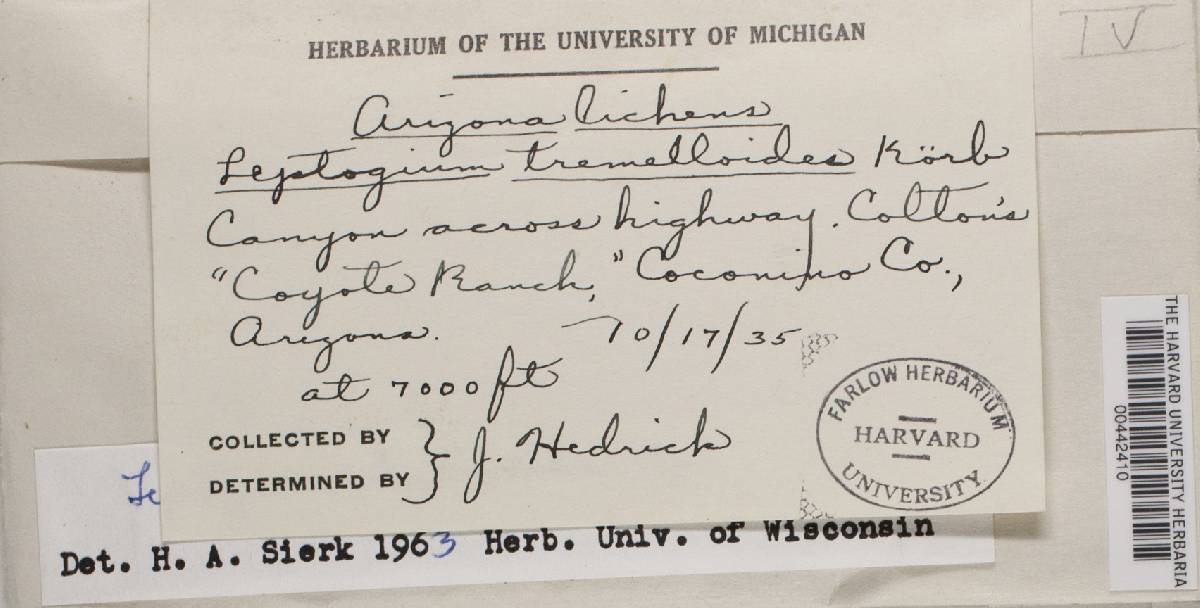 HERBARIUM OF THE UNIVERSITY OF MICHIGAN
IV
Arizona lichens
Leptogium tremelloides Körb
Canyon across highway. Colton's
"Coyote Ranch," Coconino Co.,
Arizona. 10/17/35
at 7000 ft
COLLECTED BY
DETERMINED BY } J. Hedrick
FARLOW HERBARIUM
HARVARD
UNIVERSITY
THE HARVARD UNIVERSITY HERBARIA
00442410
Le
Det. H. A. Sierk 1963 Herb. Univ. of Wisconsin